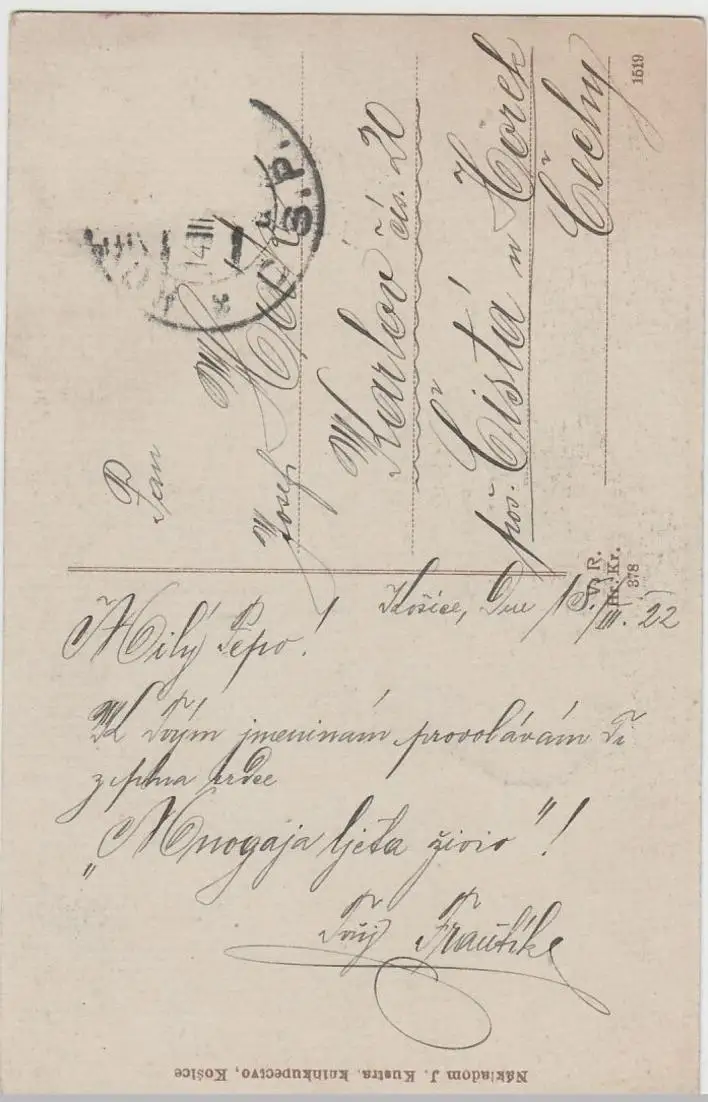 Košice, Dne 13/III. 22
Milý Pepo!
K Tvým jmeninám provolávám Ti
z plna srdce
„Mnogaja ljeta živio"!
Tvůj Frantík
Pan
Josef
Karlov čís. 20
poš. Čistá u Horek
Čechy
1519
V. R.
Hr. Kr.
378
14 III
Nákladom J. Kustra, kníhkupectvo, Košice